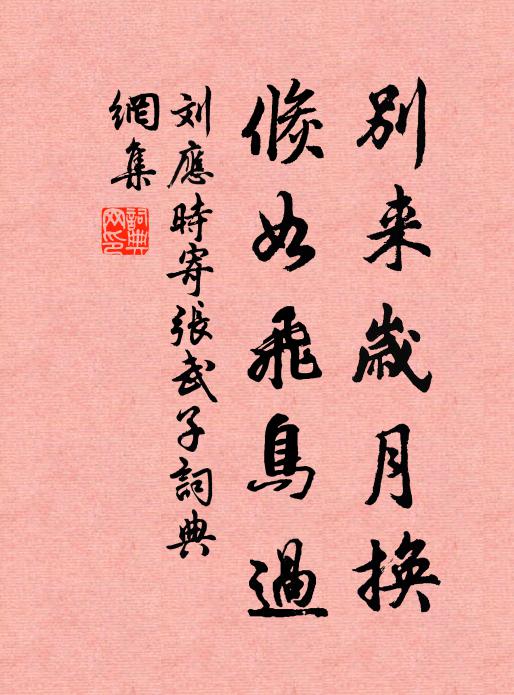 別来歲月換
倐如飛鳥過
刘應時寄張武子詞典
網集
詞典网印